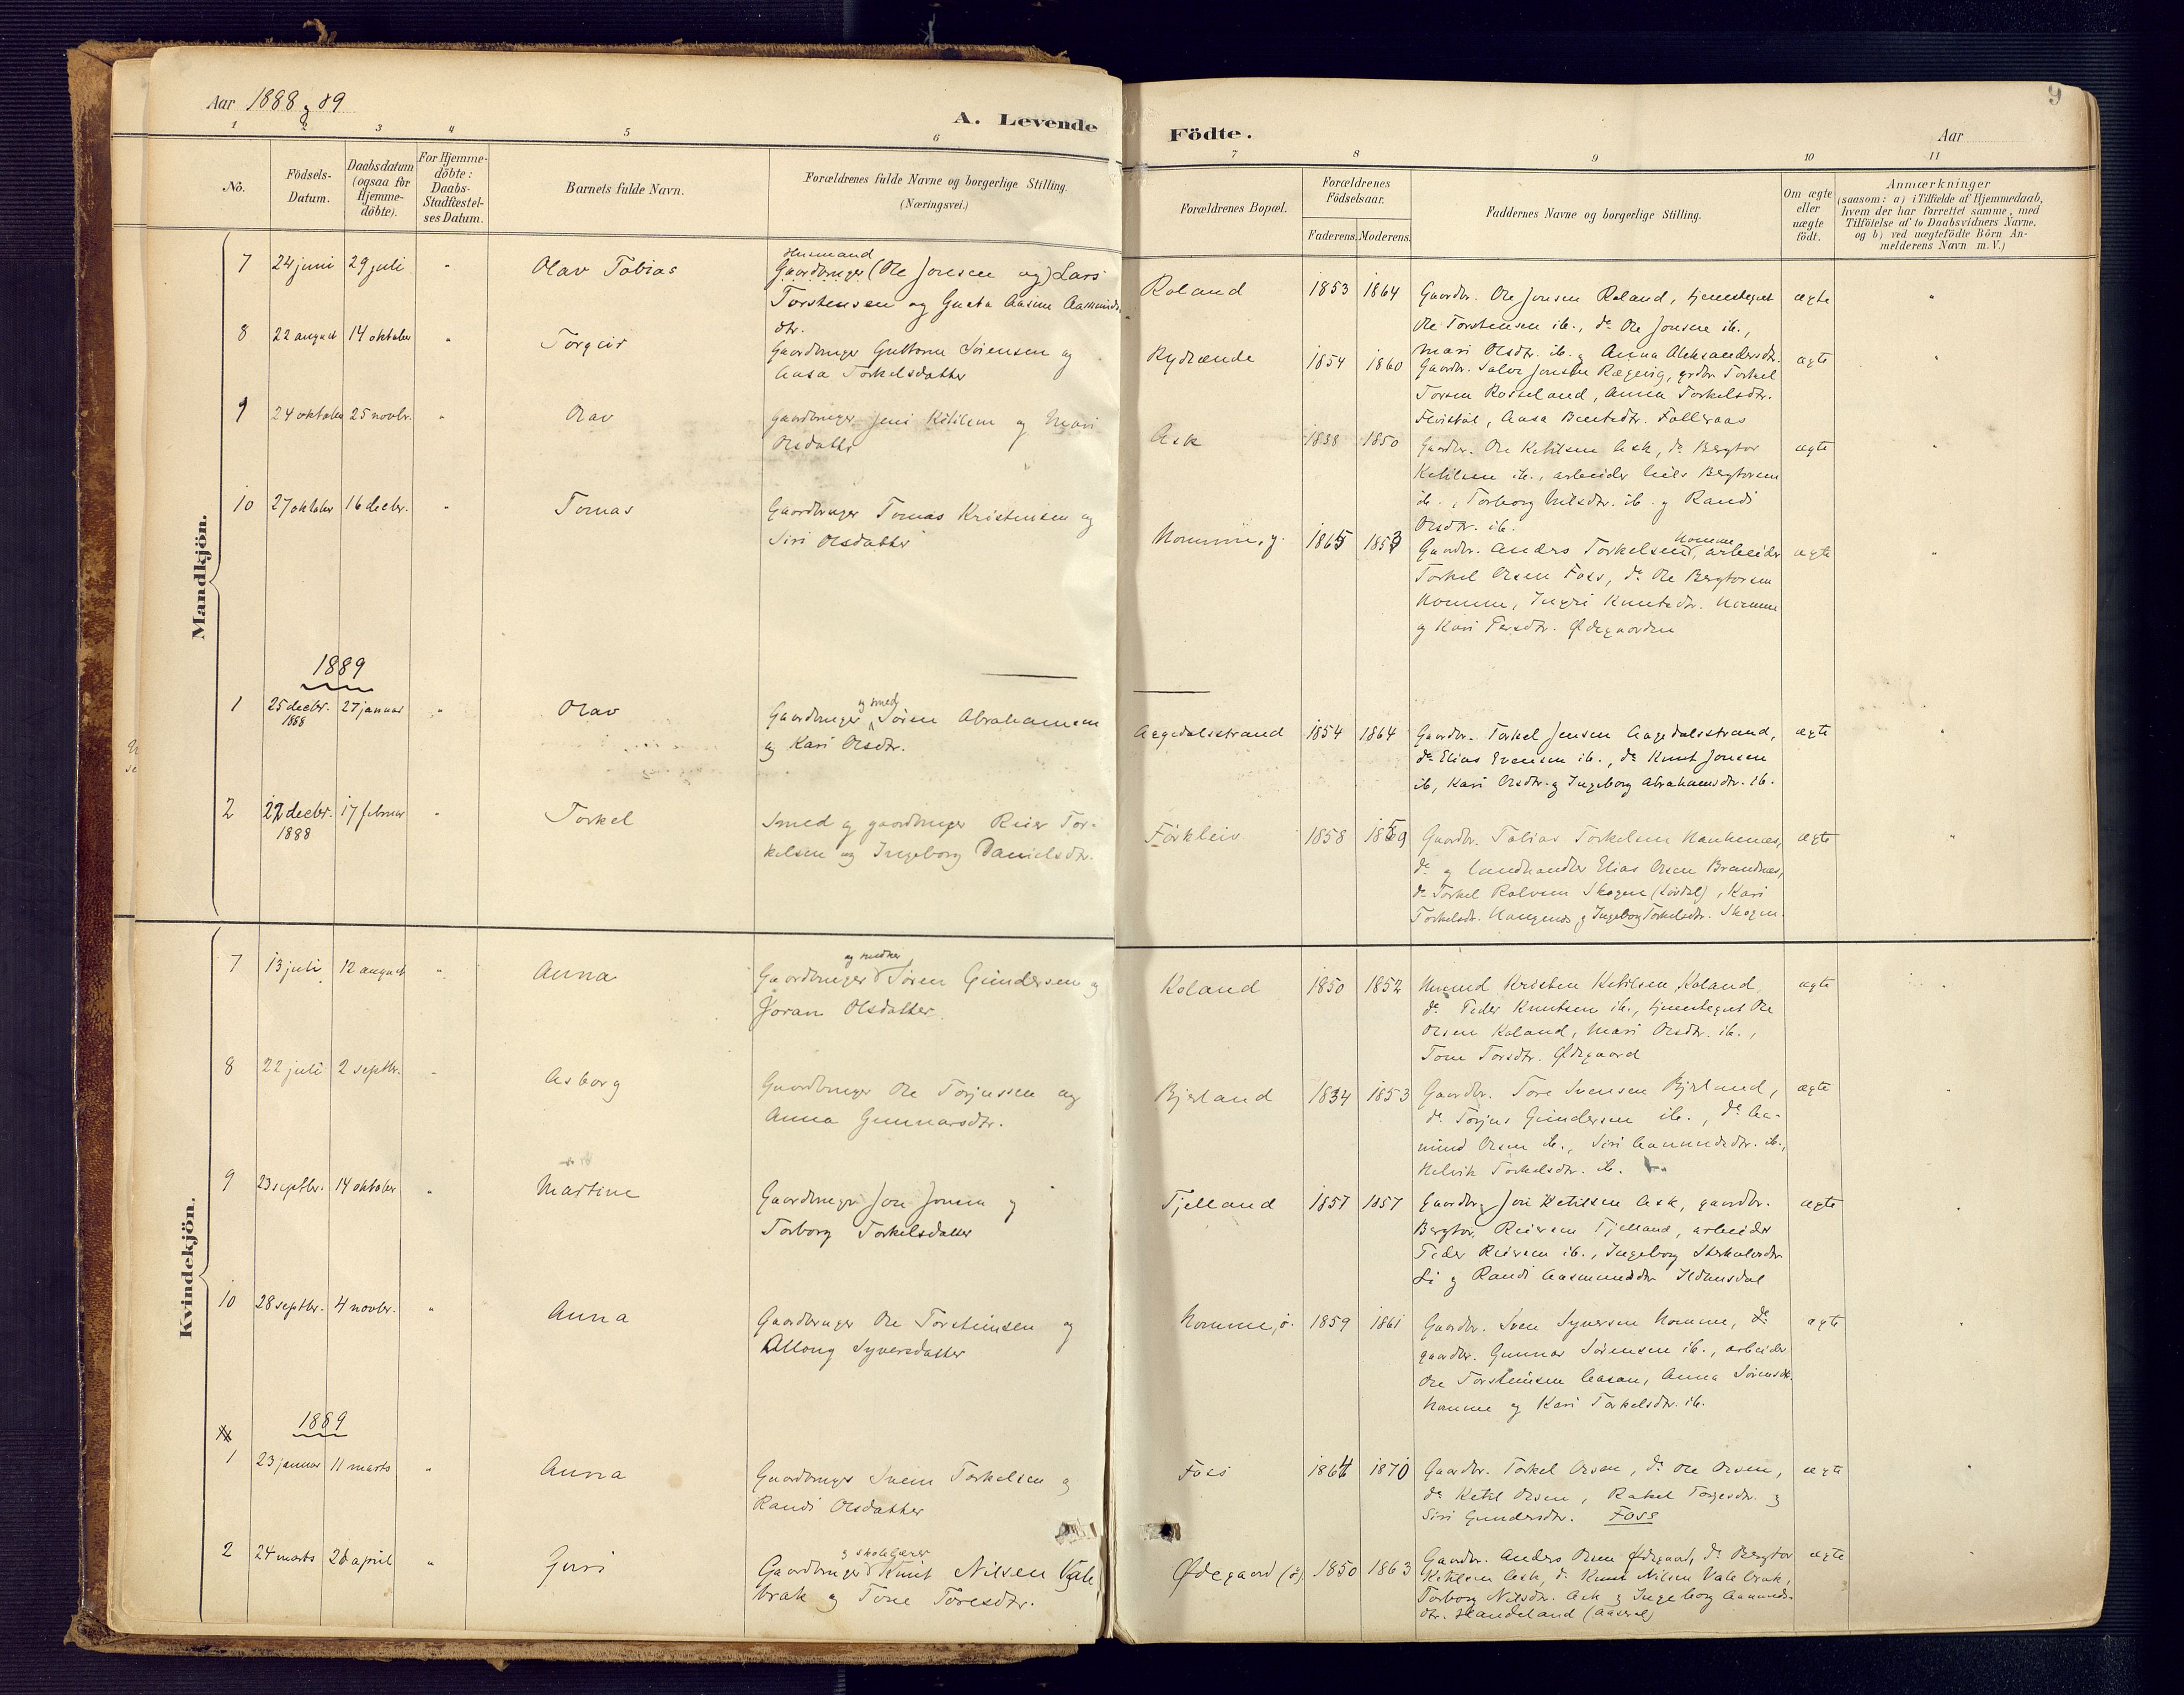 Aar 1888 og 89
A. Levende Födte.
Aar
9
1 2 3 4 5 6 7 8 9 10 11
No.
Födsels-
Datum.
Daabsdatum
(ogsaa for
Hjemme-
döbte).
For Hjemme-
döbte:
Daabs-
Stadfæstel-
ses Datum.
Barnets fulde Navn.
Forældrenes fulde Navne og borgerlige Stilling.
(Næringsvei.)
Forældrenes Bopæl.
Forældrenes
Födselsaar.
Faderens. Moderens.
Faddernes Navne og borgerlige Stilling.
Om ægte
eller
uægte
födt.
Anmærkninger
(saasom: a) i Tilfælde af Hjemmedaab,
hvem der har forrettet samme, med
Tilföielse af to Daabsvidners Navne,
og b) ved uægtefödte Börn An-
melderens Navn m. V.)
Mandkjön.
7 24 juni 29 juli " Olav Tobias
Husmand
Gaardbruger (Ole Jonsen og) Lars
Torstensen og Aasine Aamunds-
dtr.
Roland 1853 1864
Gaardbr. Ole Jonsen Roland, tjenestegut
Ole Torstensen ib., do Ole Jonsen ib.,
Mari Olsdtr. ib. og Anna Aleksandersdtr.
ægte "
8 22 august 14 oktober " Torgeir
Gaardbruger Guttorm Sörensen og
Aasa Torkelsdatter
1854 1860
Gaardbr. Salve Jonsen, grdbr. Torkel
Torsen Rosseland, Anna Torkelsdtr.
Aasa Bentsdtr. Falleraas
ægte "
9 24 oktober 25 novbr. " Olav
Gaardbruger Jens Ketilsen og Mari
Olsdatter
Ask 1838 1850
Gaardbr. Ole Ketilsen Ask, do Bergtor
Ketilsen ib., arbeider Nils Bergtorsen
ib., Torborg Nilsdtr. ib. og Randi
Olsdtr. ib.
ægte "
10 27 oktober 16 decbr. " Tomas
Gaardbruger Tomas Kristensen og
Siri Olsdatter
Homme, y. 1865 1853
Homme
Gaardbr. Anders Torkelsen, arbeider
Torkel Olsen Foss, do Ole Bergtorsen
Homme, Ingri Knutsdtr. Homme
og Kari Persdtr. Ødegaarden
ægte "
1889
1 25 decbr. 27 januar " Olav
1888
og smed
Gaardbruger Sören Abrahamsen
og Kari Olsdtr.
Aagedalsstrand 1854 1864
Gaardbr. Torkel Jensen Aagedalsstrand,
do Elias Evensen ib., do Knut Jonsen
ib, Kari Olsdtr. og Ingeborg Abrahamsdtr. ib.
ægte "
2 22 decbr. 17 februar " Torkel
1888
Smed og gaardbruger Reier Tor-
kelsen og Ingeborg Danielsdtr.
Förkleiv 1858 1859
Gaardbr. Tobias Torkelsen
do og landhandler Elias Olsen Brandnes,
do Torkel Rolvsen Skogen, Kari
Torkelsdtr. og Ingeborg Torkelsdtr. Skogen
ægte "
Kvindekjön.
7 13 juli 12 august " Anna
og snedker
Gaardbruger Sören Gundersen og
Joran Olsdatter
Koland 1850 1852
Husmd Kristen Ketilsen Koland,
do Peder Knutsen ib., tjenestegut Ole
Olsen Koland, Mari Olsdtr. ib.,
Tone Torsdtr. Ödegaard
ægte "
8 22 juli 2 septbr. " Asborg
Gaardbruger Ole Torjussen og
Anna Gunnarsdtr.
Bjerland 1834 1853
Gaardbr. Tore Svensen Bjerland,
do Torjus Gundersen ib., do Aa-
mund Olsen ib., Siri Aamundsdtr. ib.,
Helvik Torkelsdtr. ib.
ægte "
9 23 septbr. 14 oktober " Martine
Gaardbruger Jon Jonsen og
Torborg Torkelsdatter
Tjelland 1857 1857
Gaardbr. Jon Ketilsen Ask, gaardbr.
Bergtor Reiersen Tjelland, arbeider
Peder Reiersen ib., Ingeborg
Li og Randi Aasmundsdtr
ægte "
10 28 septbr. 4 novbr. " Anna
Gaardbruger Ole Torsteinsen og
Allong Syversdatter
Homme, ö. 1859 1861
Gaardbr. Sven Syversen Homme, do
gaardbr. Gunnar Sörensen ib., arbeider
Ole Torsteinsen Aasen, Anna Sörensdtr.
Homme og Kari Torkelsdtr. ib.
ægte "
1889
1 23 januar 11 marts " Anna
Gaardbruger Svein Torkelsen og
Randi Olsdatter
Foss 1864 1870
Gaardbr. Torkel Olsen, do Ole Olsen,
do Ketil Olsen, Rakel Torjesdtr. og
Siri Gundersdtr. Foss
ægte "
2 24 marts 26 april " Guri
og skolelærer
Gaardbruger Knut Nilsen Vale
brak og Tone Toresdtr.
Ødegaard (ö) 1850 1863
Gaardbr. Anders Olsen Ødegaard, do Bergtor
Ketilsen Ask, do Knut Nilsen Valebrak,
Torborg Nilsdtr. Ask og Ingeborg Aamunds-
dtr. Haadeland (Aaseral)
ægte